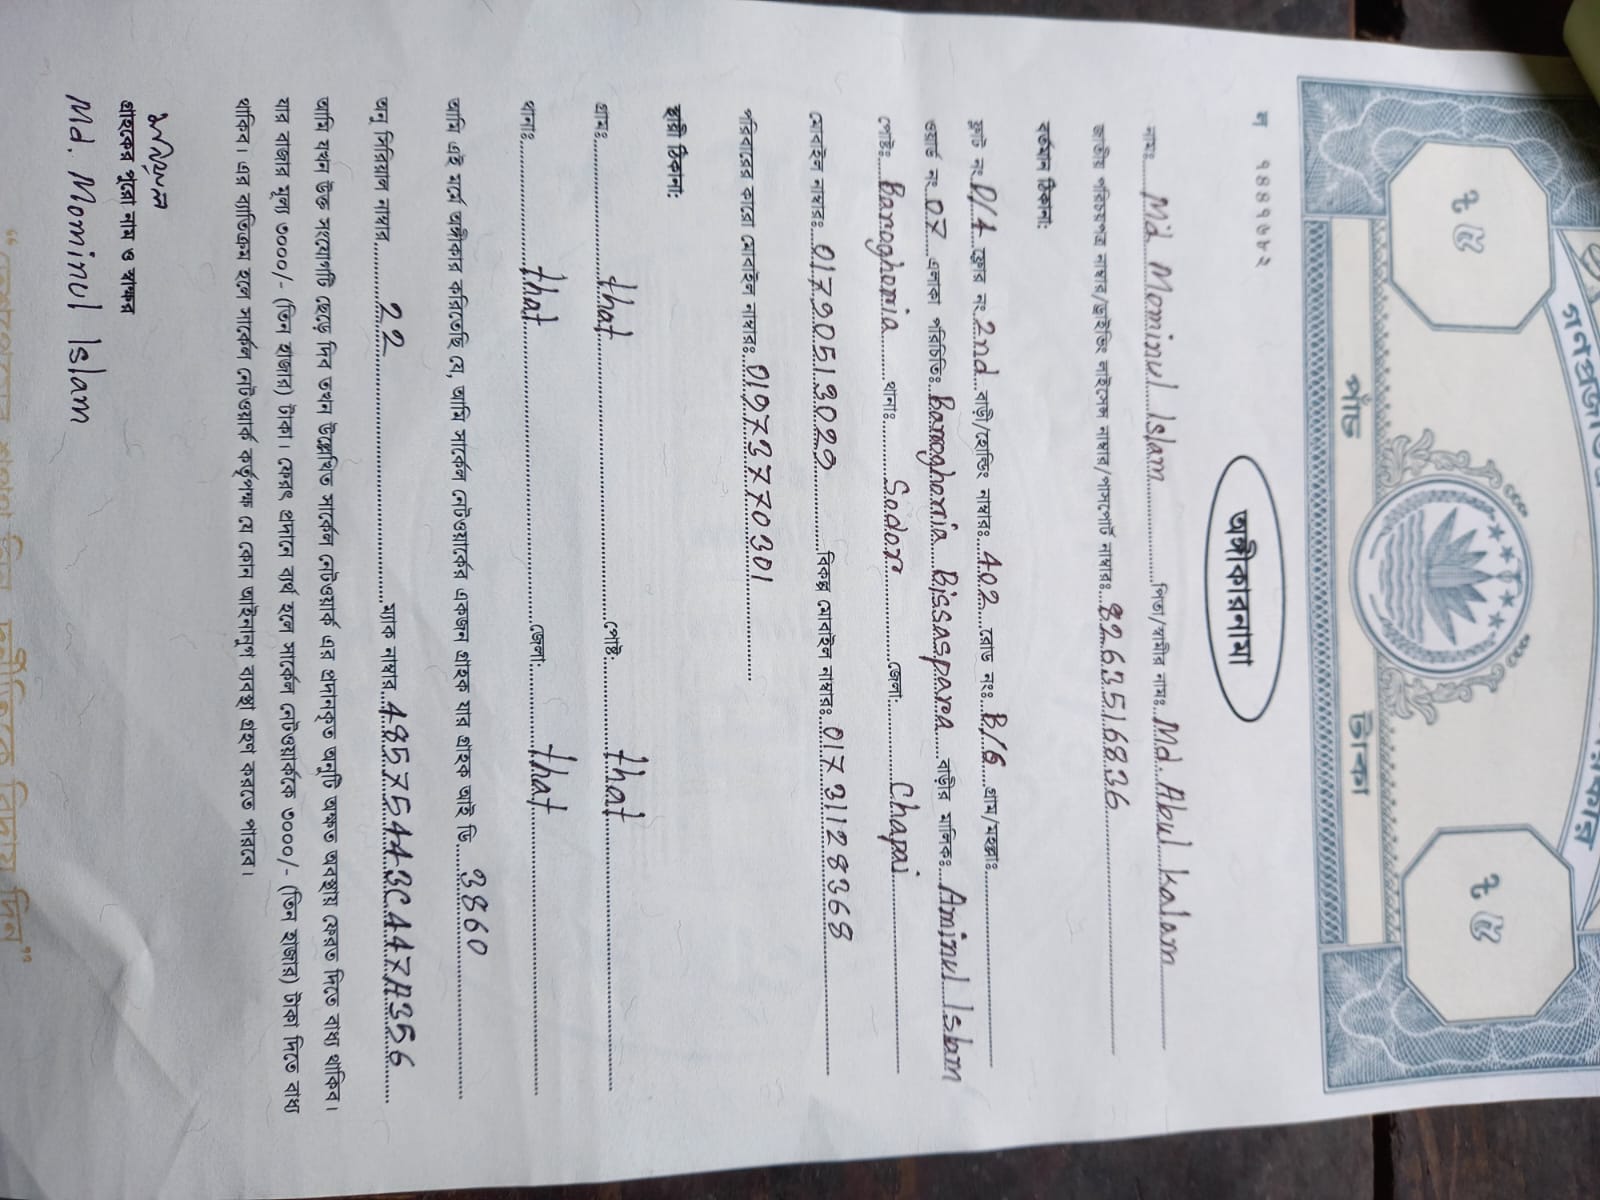 ৳ ৫
৳ ৫
পাঁচ টাকা
ল ৭৪৪৭৬৮২
অঙ্গীকারনামা
নামঃ Md Mominul Islam পিতা/স্বামীর নামঃ Md. Abul kalam
জাতীয় পরিচয়পত্র নাম্বার/ড্রাইভিং লাইসেন্স নাম্বার/পাসপোর্ট নাম্বারঃ 8263516836
বর্তমান ঠিকানা:
ফ্লাট নং D/4 ফ্লোর নং 2nd বাড়ী/হোল্ডিং নাম্বারঃ 402 রোড নংঃ B/6 গ্রাম/মহল্লাঃ
ওয়ার্ড নং 07 এলাকা পরিচিতিঃ Baroghoria Bissaspara বাড়ীর মালিকঃ Aminul Islam
পোষ্টঃ Baroghoria থানাঃ Sador জেলা: Chapai
মোবাইল নাম্বারঃ 01790513029 বিকল্প মোবাইল নাম্বারঃ 01731128368
পরিবারের কারো মোবাইল নাম্বারঃ 01973770301
স্থায়ী ঠিকানা:
গ্রামঃ that পোষ্ট: that
থানাঃ that জেলা: that
আমি এই মর্মে অঙ্গীকার করিতেছি যে, আমি সার্কেল নেটওয়ার্কের একজন গ্রাহক যার গ্রাহক আই ডি 3860
অনু সিরিয়াল নাম্বার 22 ম্যাক নাম্বার 48575443CA47A356
আমি যখন উক্ত সংযোগটি ছেড়ে দিব তখন উল্লেখিত সার্কেল নেটওয়ার্ক এর প্রদানকৃত অনুটি অক্ষত অবস্থায় ফেরত দিতে বাধ্য থাকিব।
যার বাজার মূল্য ৩০০০/- (তিন হাজার) টাকা। ফেরৎ প্রদানে ব্যর্থ হলে সার্কেল নেটওয়ার্ককে ৩০০০/- (তিন হাজার) টাকা দিতে বাধ্য
থাকিব। এর ব্যতিক্রম হলে সার্কেল নেটওয়ার্ক কর্তৃপক্ষ যে কোন আইনানুগ ব্যবস্থা গ্রহণ করতে পারবে।
গ্রাহকের পুরো নাম ও স্বাক্ষর
Md. Mominul Islam